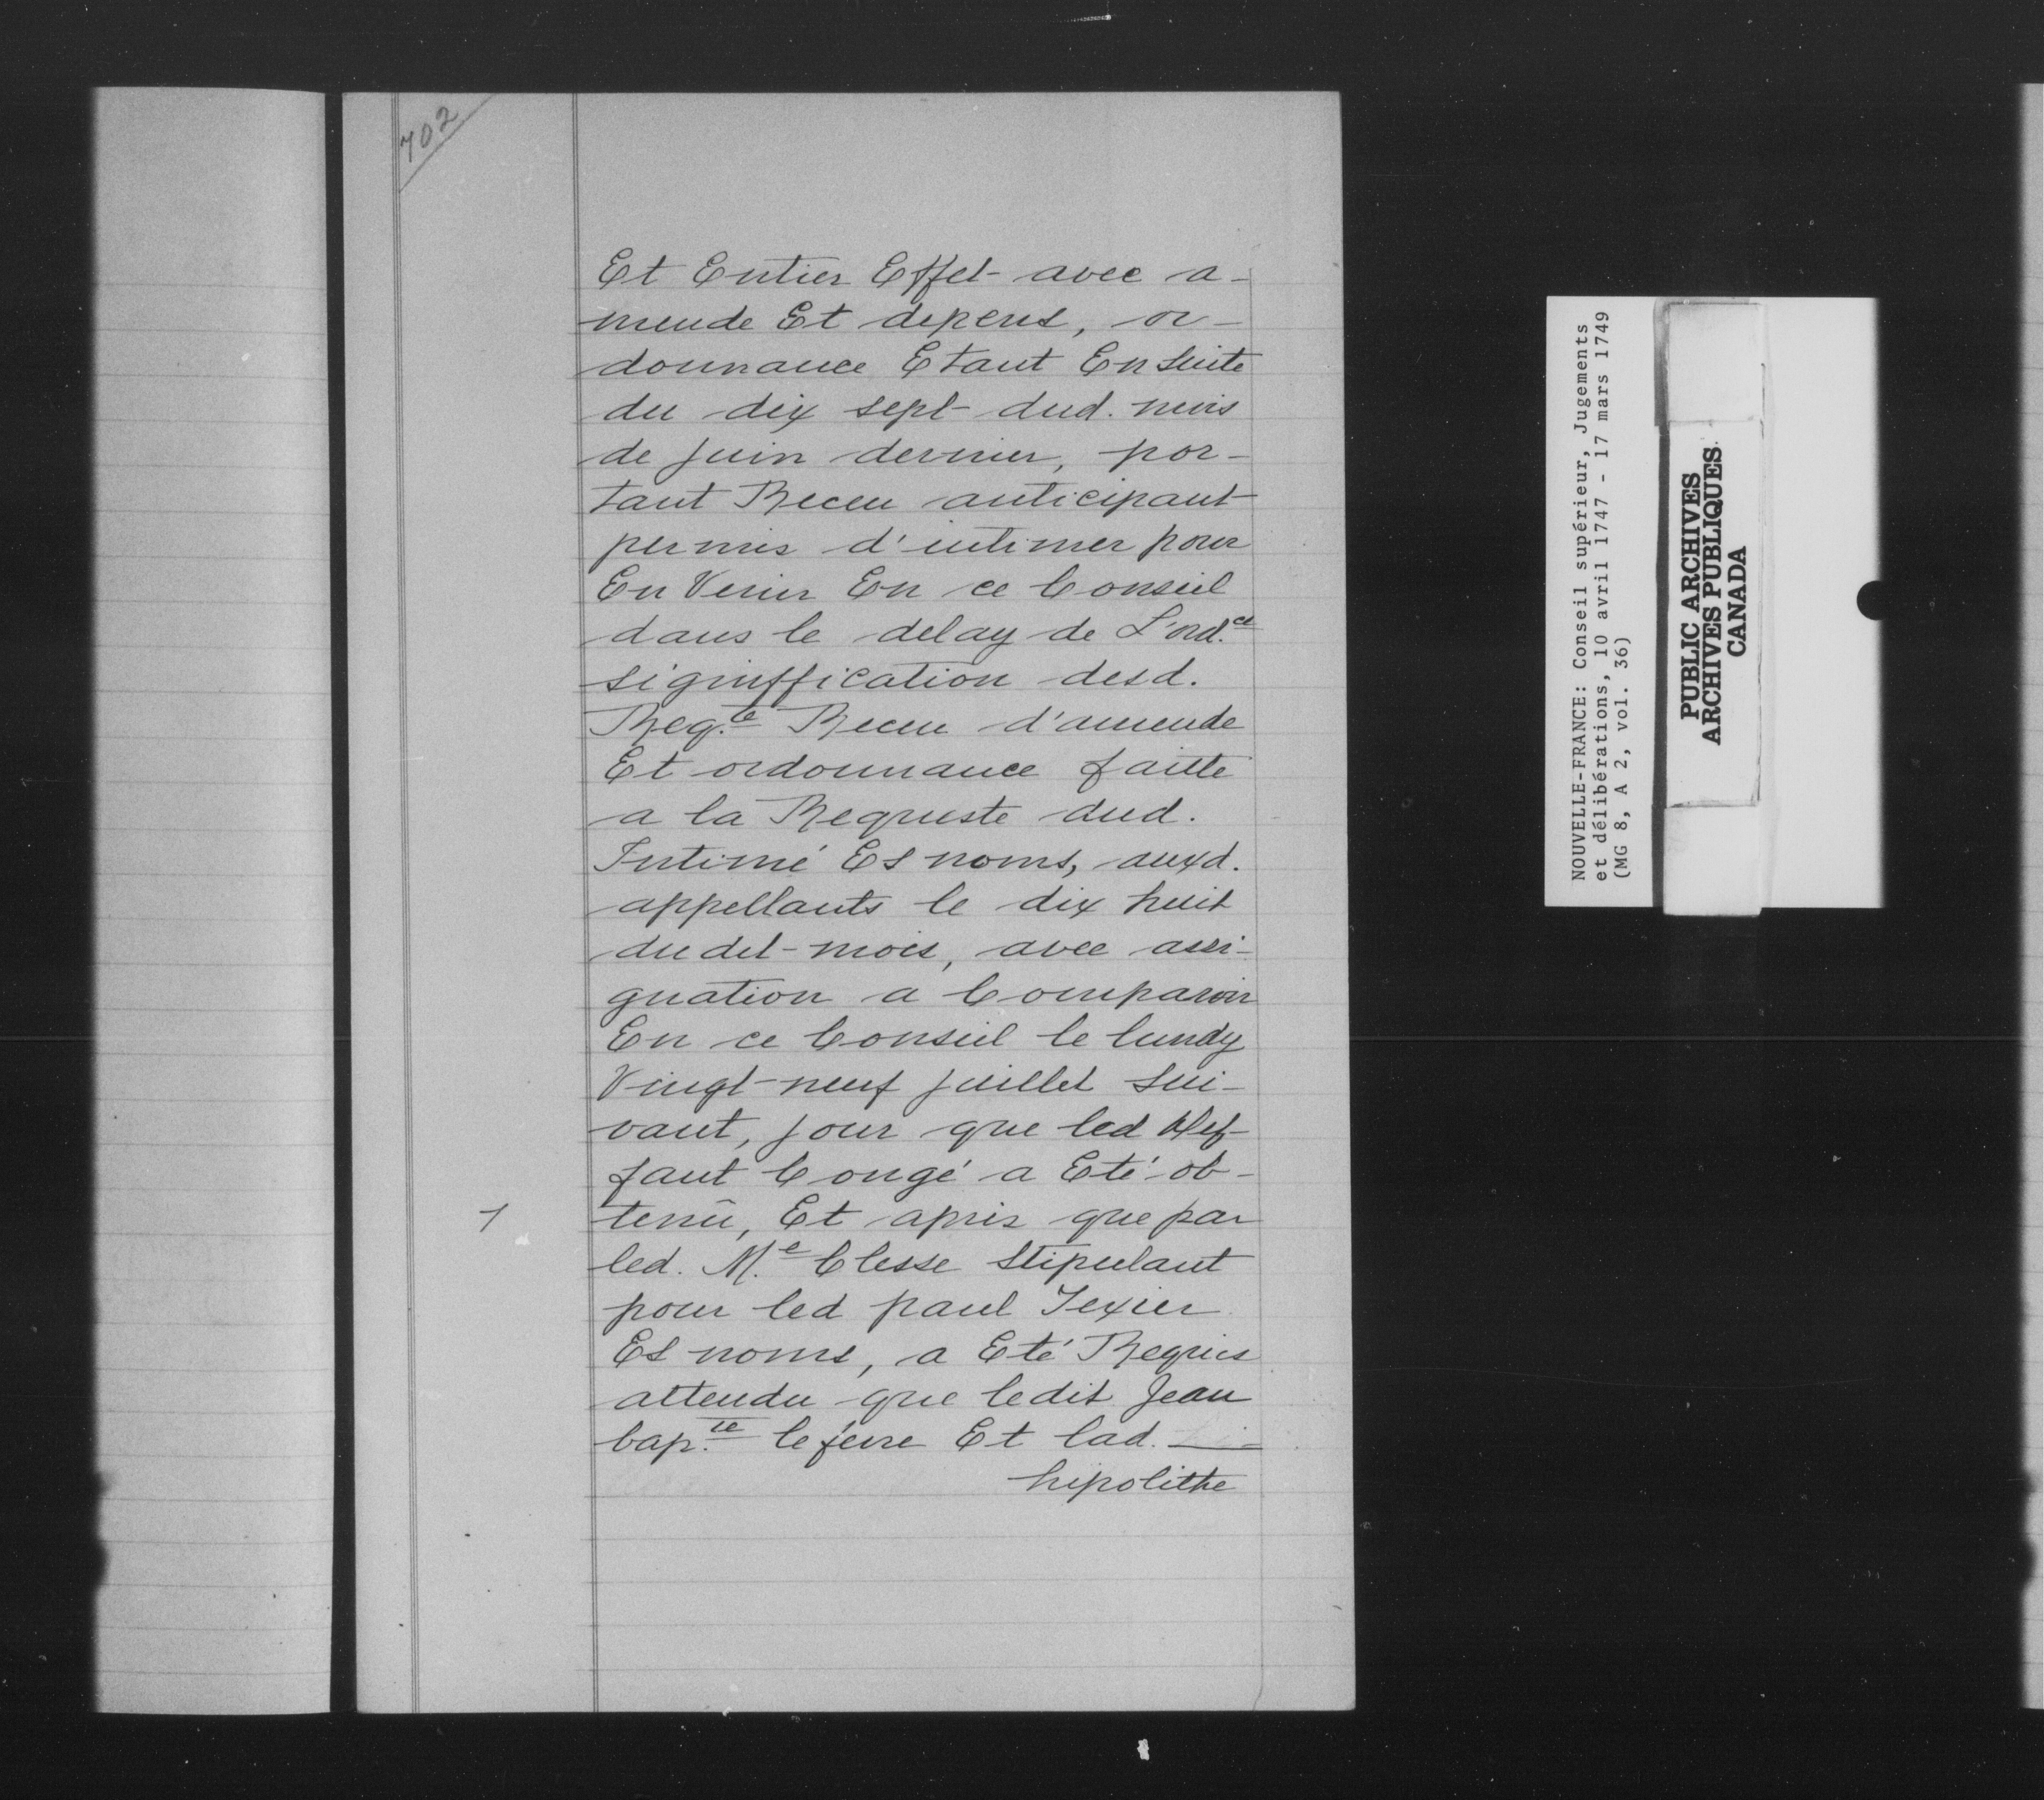 702
Et Entier Effet avec a-
mende Et depens, or-
donnance Etant En suite
du dix sept dud. mois
de juin dernier, por-
tant Receu anticipant
permis d'intimer pour
En Venir En ce Conseil
dans le delay de L'ord.ce
signiffication desd.
Reqte Receu d'amende
Et ordonnance faitte
a la Requeste dud.
Intimé Es noms, auxd.
appellants le dix huit
du det mois, avec assi-
gnation a Comparoir
En ce Conseil le lundy
Vingt-neuf juillet sui-
vant, jour que led Def-
faut Congé a Eté ob-
tenû, Et après que par
led. M.e Clesse Stipulant
pour led paul Texier
Es noms, a Eté Requis
attendu que ledit Jean
bap.te lefevre Et lad.
hipolithe
NOUVELLE-FRANCE: Conseil supérieur, Jugements
et délibérations, 10 avril 1747 - 17 mars 1749
(MG 8, A 2, vol. 36)
PUBLIC ARCHIVES
ARCHIVES PUBLIQUES
CANADA